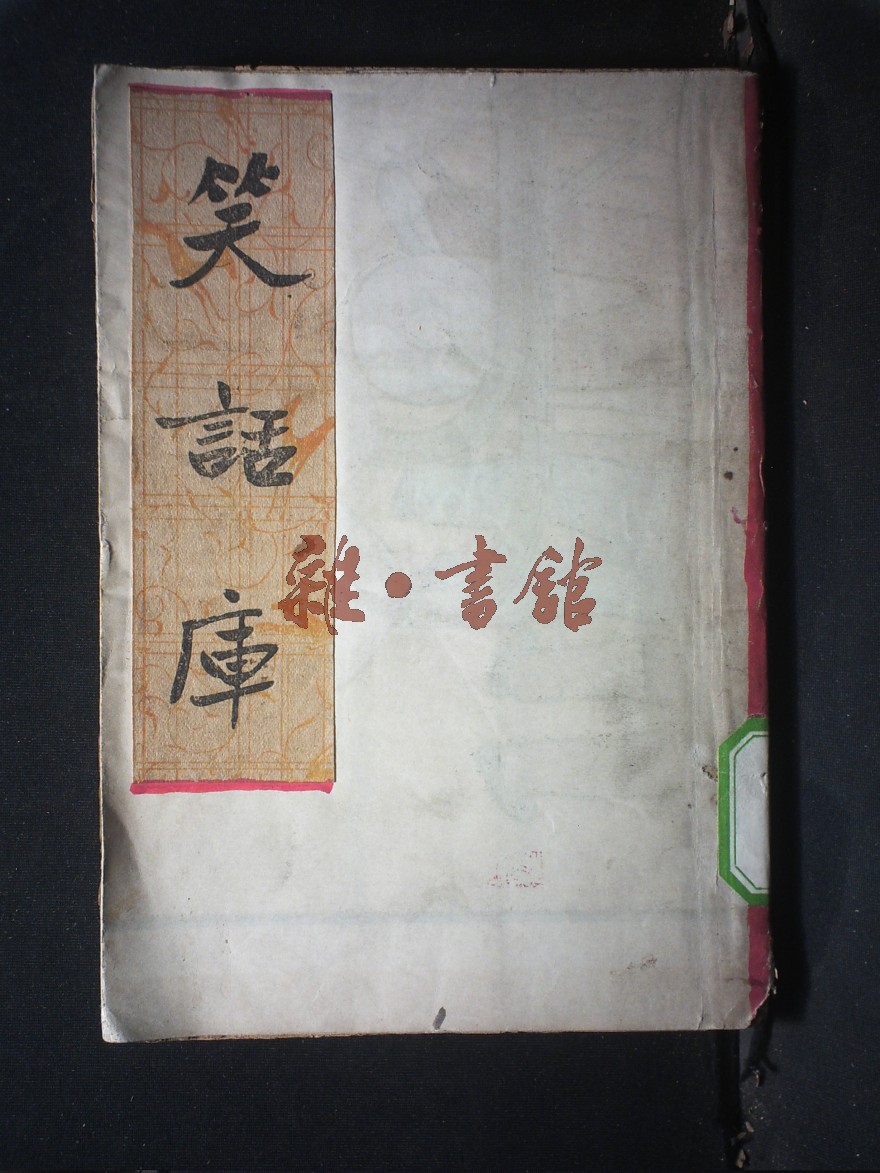 笑話庫
雜·書館